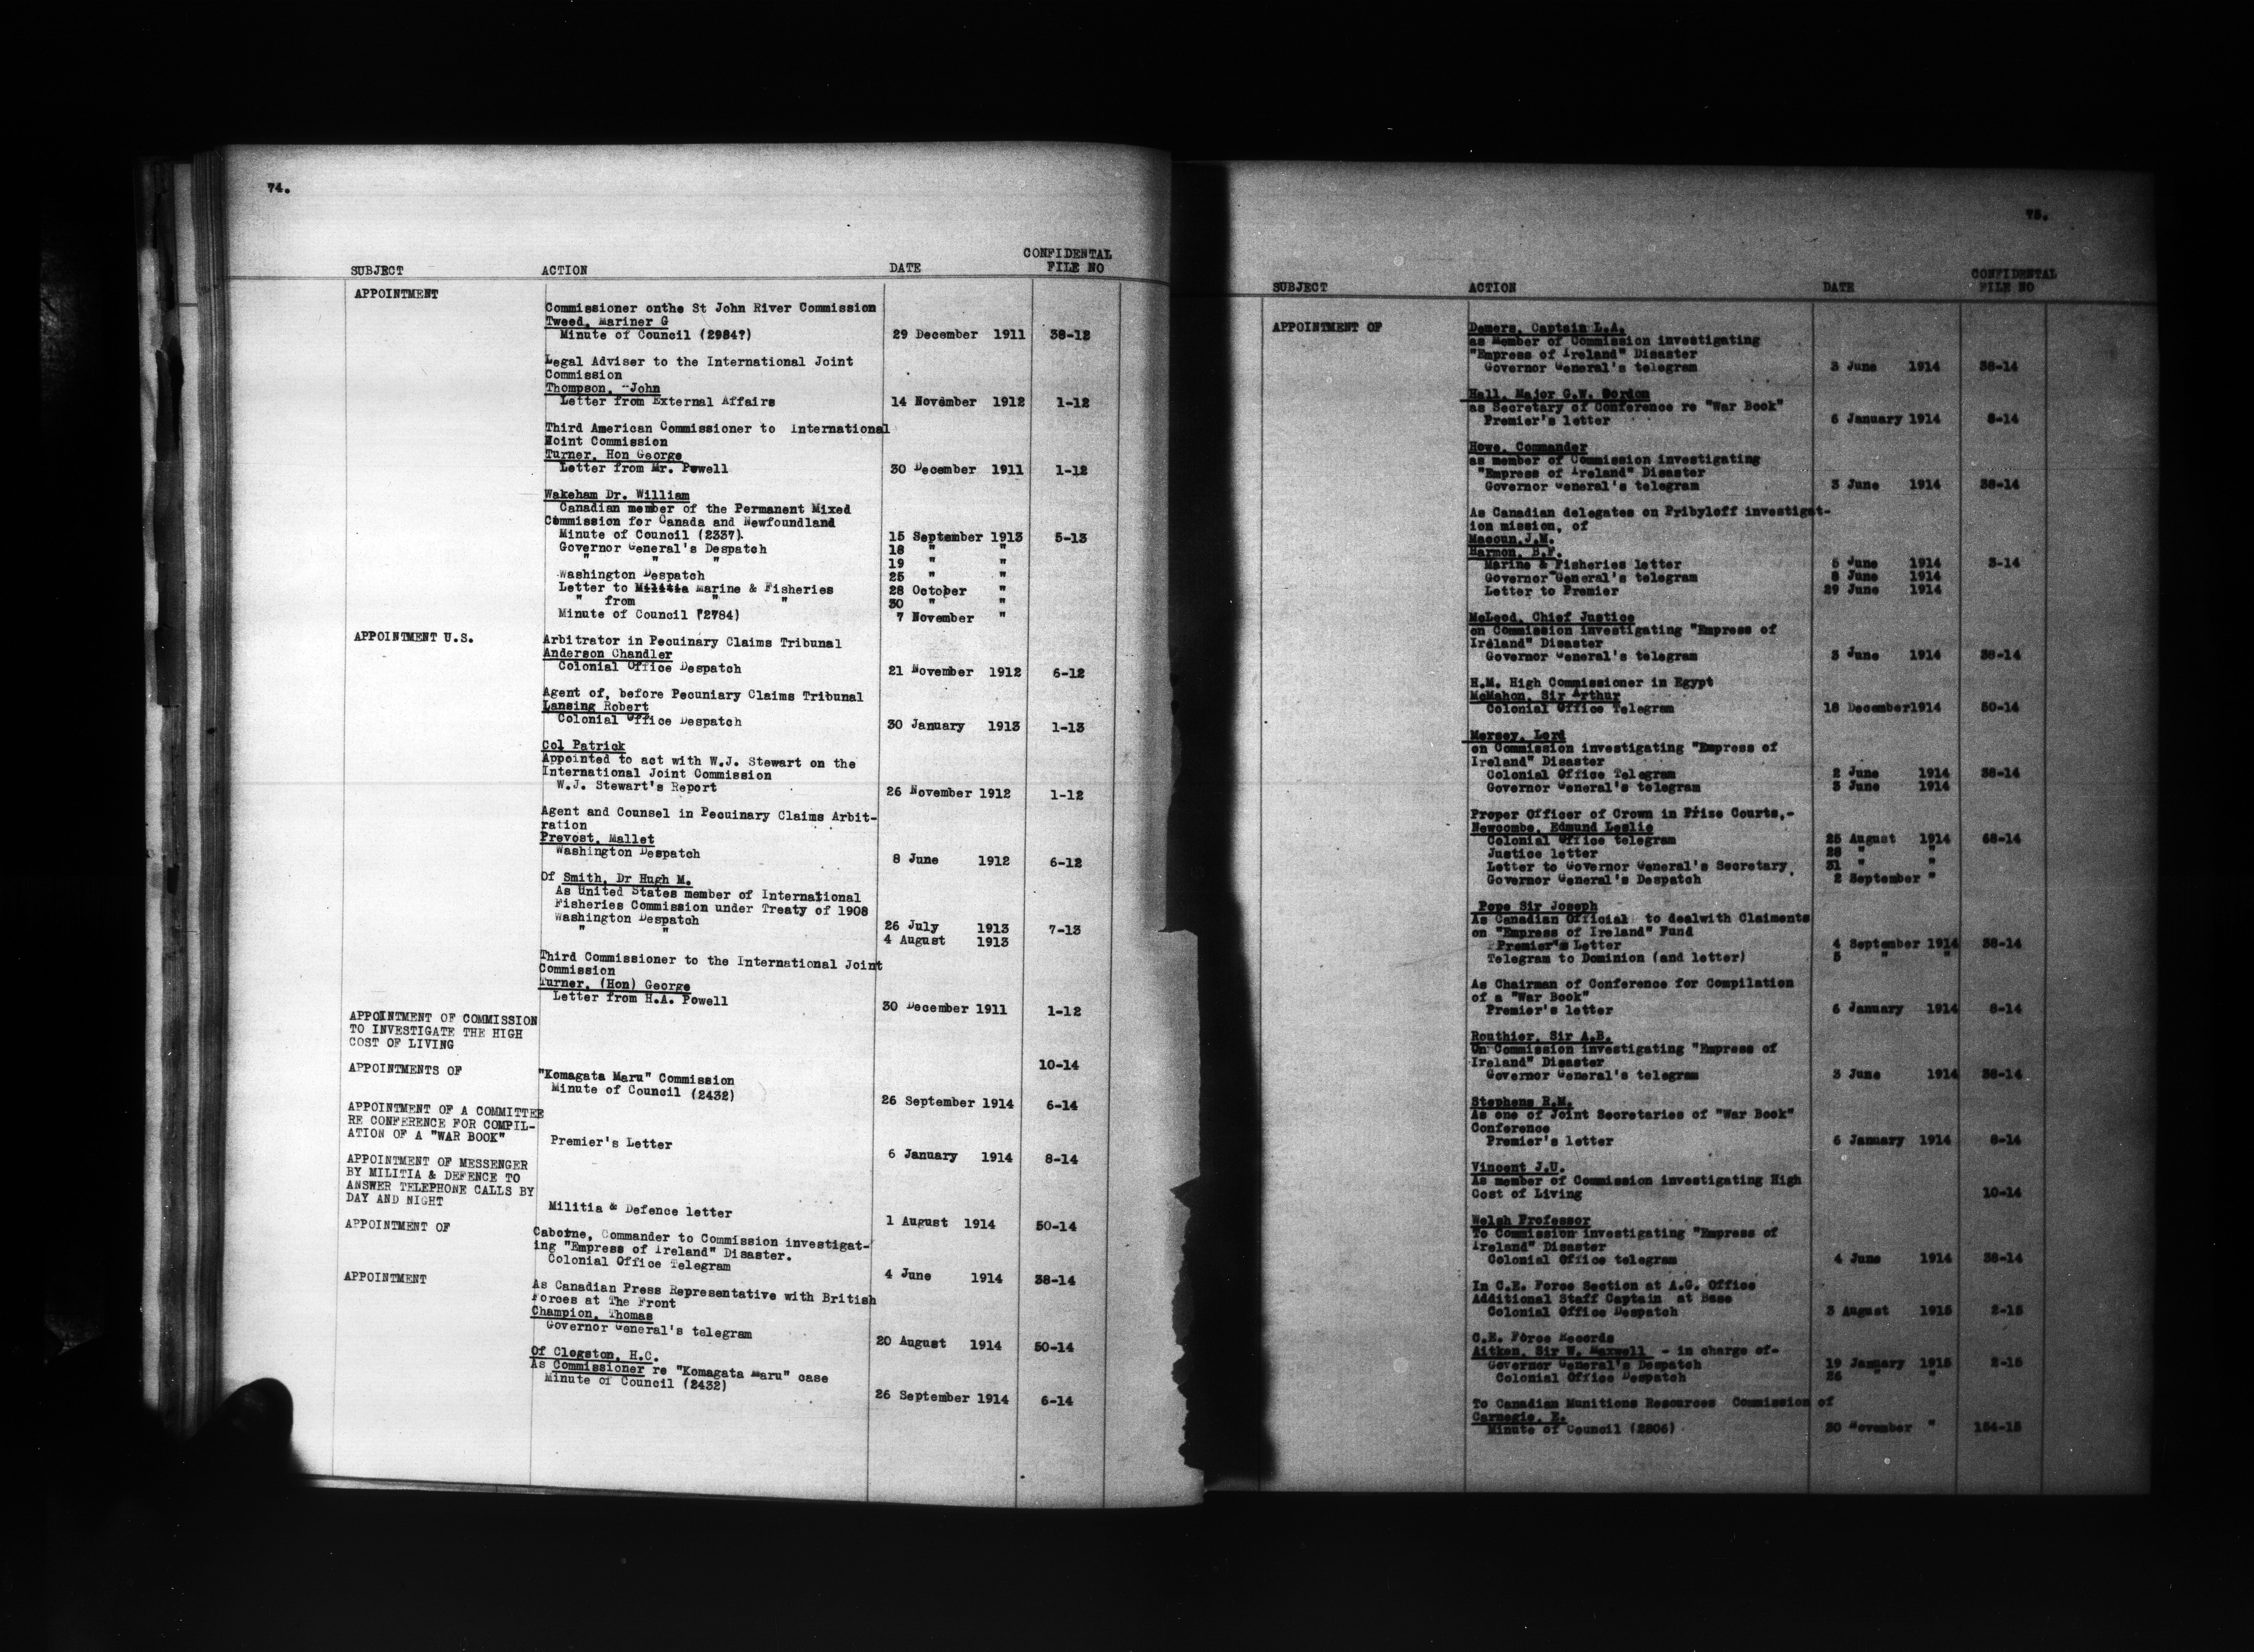 74.
SUBJECT ACTION DATE CONFIDENTAL FILE NO
APPOINTMENT
Commissioner onthe St John River Commission
Tweed, Mariner G
Minute of Council (2984?) 29 December 1911 38-12
Legal Adviser to the International Joint
Commission
Thompson, -John
Letter from External Affairs 14 November 1912 1-12
Third American Commissioner to International
Noint Commission
Turner, Hon George
Letter from Mr. Powell 30 December 1911 1-12
Wakeham Dr. William
Canadian member of the Permanent Mixed
Commission for Canada and Newfoundland
Minute of Council (2337). 15 September 1913 5-13
Governor General's Despatch 18 " "
" " " 19 " "
Washington Despatch 25 " "
Letter to Militia Marine & Fisheries 28 October "
" from " " 30 " "
Minute of Council (2784) 7 November "
APPOINTMENT U.S. Arbitrator in Pecuinary Claims Tribunal
Anderson Chandler
Colonial Office Despatch 21 November 1912 6-12
Agent of, before Pecuniary Claims Tribunal
Lansing Robert
Colonial Office Despatch 30 January 1913 1-13
Col Patrick
Appointed to act with W.J. Stewart on the
International Joint Commission
W.J. Stewart's Report 26 November 1912 1-12
Agent and Counsel in Pecuinary Claims Arbit-
ration
Prevost, Mallet
Washington Despatch 8 June 1912 6-12
Of Smith, Dr Hugh M.
As United States member of International
Fisheries Commission under Treaty of 1908
Washington Despatch 26 July 1913 7-13
" " 4 August 1913
Third Commissioner to the International Joint
Commission
Turner, (Hon) George
Letter from H.A. Powell 30 December 1911 1-12
APPOINTMENT OF COMMISSION
TO INVESTIGATE THE HIGH
COST OF LIVING 10-14
APPOINTMENTS OF "Komagata Maru" Commission
Minute of Council (2432) 26 September 1914 6-14
APPOINTMENT OF A COMMITTEE
RE CONFERENCE FOR COMPIL-
ATION OF A "WAR BOOK" Premier's Letter 6 January 1914 8-14
APPOINTMENT OF MESSENGER
BY MILITIA & DEFENCE TO
ANSWER TELEPHONE CALLS BY
DAY AND NIGHT Militia & Defence letter 1 August 1914 50-14
APPOINTMENT OF Caborne, Commander to Commission investigat-
ing "Empress of Ireland" Disaster.
Colonial Office Telegram 4 June 1914 38-14
APPOINTMENT As Canadian Press Representative with British
Forces at The Front
Champion, Thomas
Governor General's telegram 20 August 1914 50-14
Of Clogston, H.C.
As Commissioner re "Komagata Maru" case
Minute of Council (2432) 26 September 1914 6-14
75.
SUBJECT ACTION DATE CONFIDENTAL FILE NO
APPOINTMENT OF Demers, Captain L.A.
as Member of Commission investigating
"Empress of Ireland" Disaster
Governor General's telegram 3 June 1914 38-14
Hall, Major G.W. Gordon
as Secretary of Conference re "War Book"
Premier's letter 6 January 1914 8-14
Howe, Commander
as member of Commission investigating
"Empress of Ireland" Disaster
Governor General's telegram 3 June 1914 38-14
As Canadian delegates on Pribyloff investigat-
ion mission, of
Macoun,J.M.
Harmon, B.F.
Marine & Fisheries letter 5 June 1914 3-14
Governor General's telegram 8 June 1914
Letter to Premier 29 June 1914
McLeod, Chief Justice
on Commission investigating "Empress of
Ireland" Disaster
Governor General's telegram 3 June 1914 38-14
H.M. High Commissioner in Egypt
McMahon, Sir Arthur
Colonial Office Telegram 18 December1914 50-14
Mersey, Lord
on Commission investigating "Empress of
Ireland" Disaster
Colonial Office Telegram 2 June 1914 38-14
Governor General's telegram 3 June 1914
Proper Officer of Crown in Prize Courts,-
Newcombe, Edmund Leslie
Colonial Office telegram 25 August 1914 68-14
Justice letter 28 " "
Letter to Governor General's Secretary 31 " "
Governor General's Despatch 2 September "
Pope Sir Joseph
As Canadian Official to dealwith Claiments
on "Empress of Ireland" Fund
Premier's Letter 4 September 1914 38-14
Telegram to Dominion (and letter) 5 " "
As Chairman of Conference for Compilation
of a "War Book"
Premier's letter 6 January 1914 8-14
Routhier, Sir A.B.
On Commission investigating "Empress of
Ireland" Disaster
Governor General's telegram 3 June 1914 38-14
Stephens R.M.
As one of Joint Secretaries of "War Book"
Conference
Premier's letter 6 January 1914 8-14
Vincent J.U.
As member of Commission investigating High
Cost of Living 10-14
Welsh Professor
To Commission investigating "Empress of
Ireland" Disaster
Colonial Office telegram 4 June 1914 38-14
In C.E. Force Section at A.G. Office
Additional Staff Captain at Base
Colonial Office Despatch 3 August 1915 2-15
C.E. Force Records
Aitken, Sir W. Maxwell - in charge of-
Governor General's Despatch 19 January 1915 2-15
Colonial Office Despatch 26 " "
To Canadian Munitions Resources Commission of
Carnegie, E.
Minute of Council (2806) 30 November " 154-15